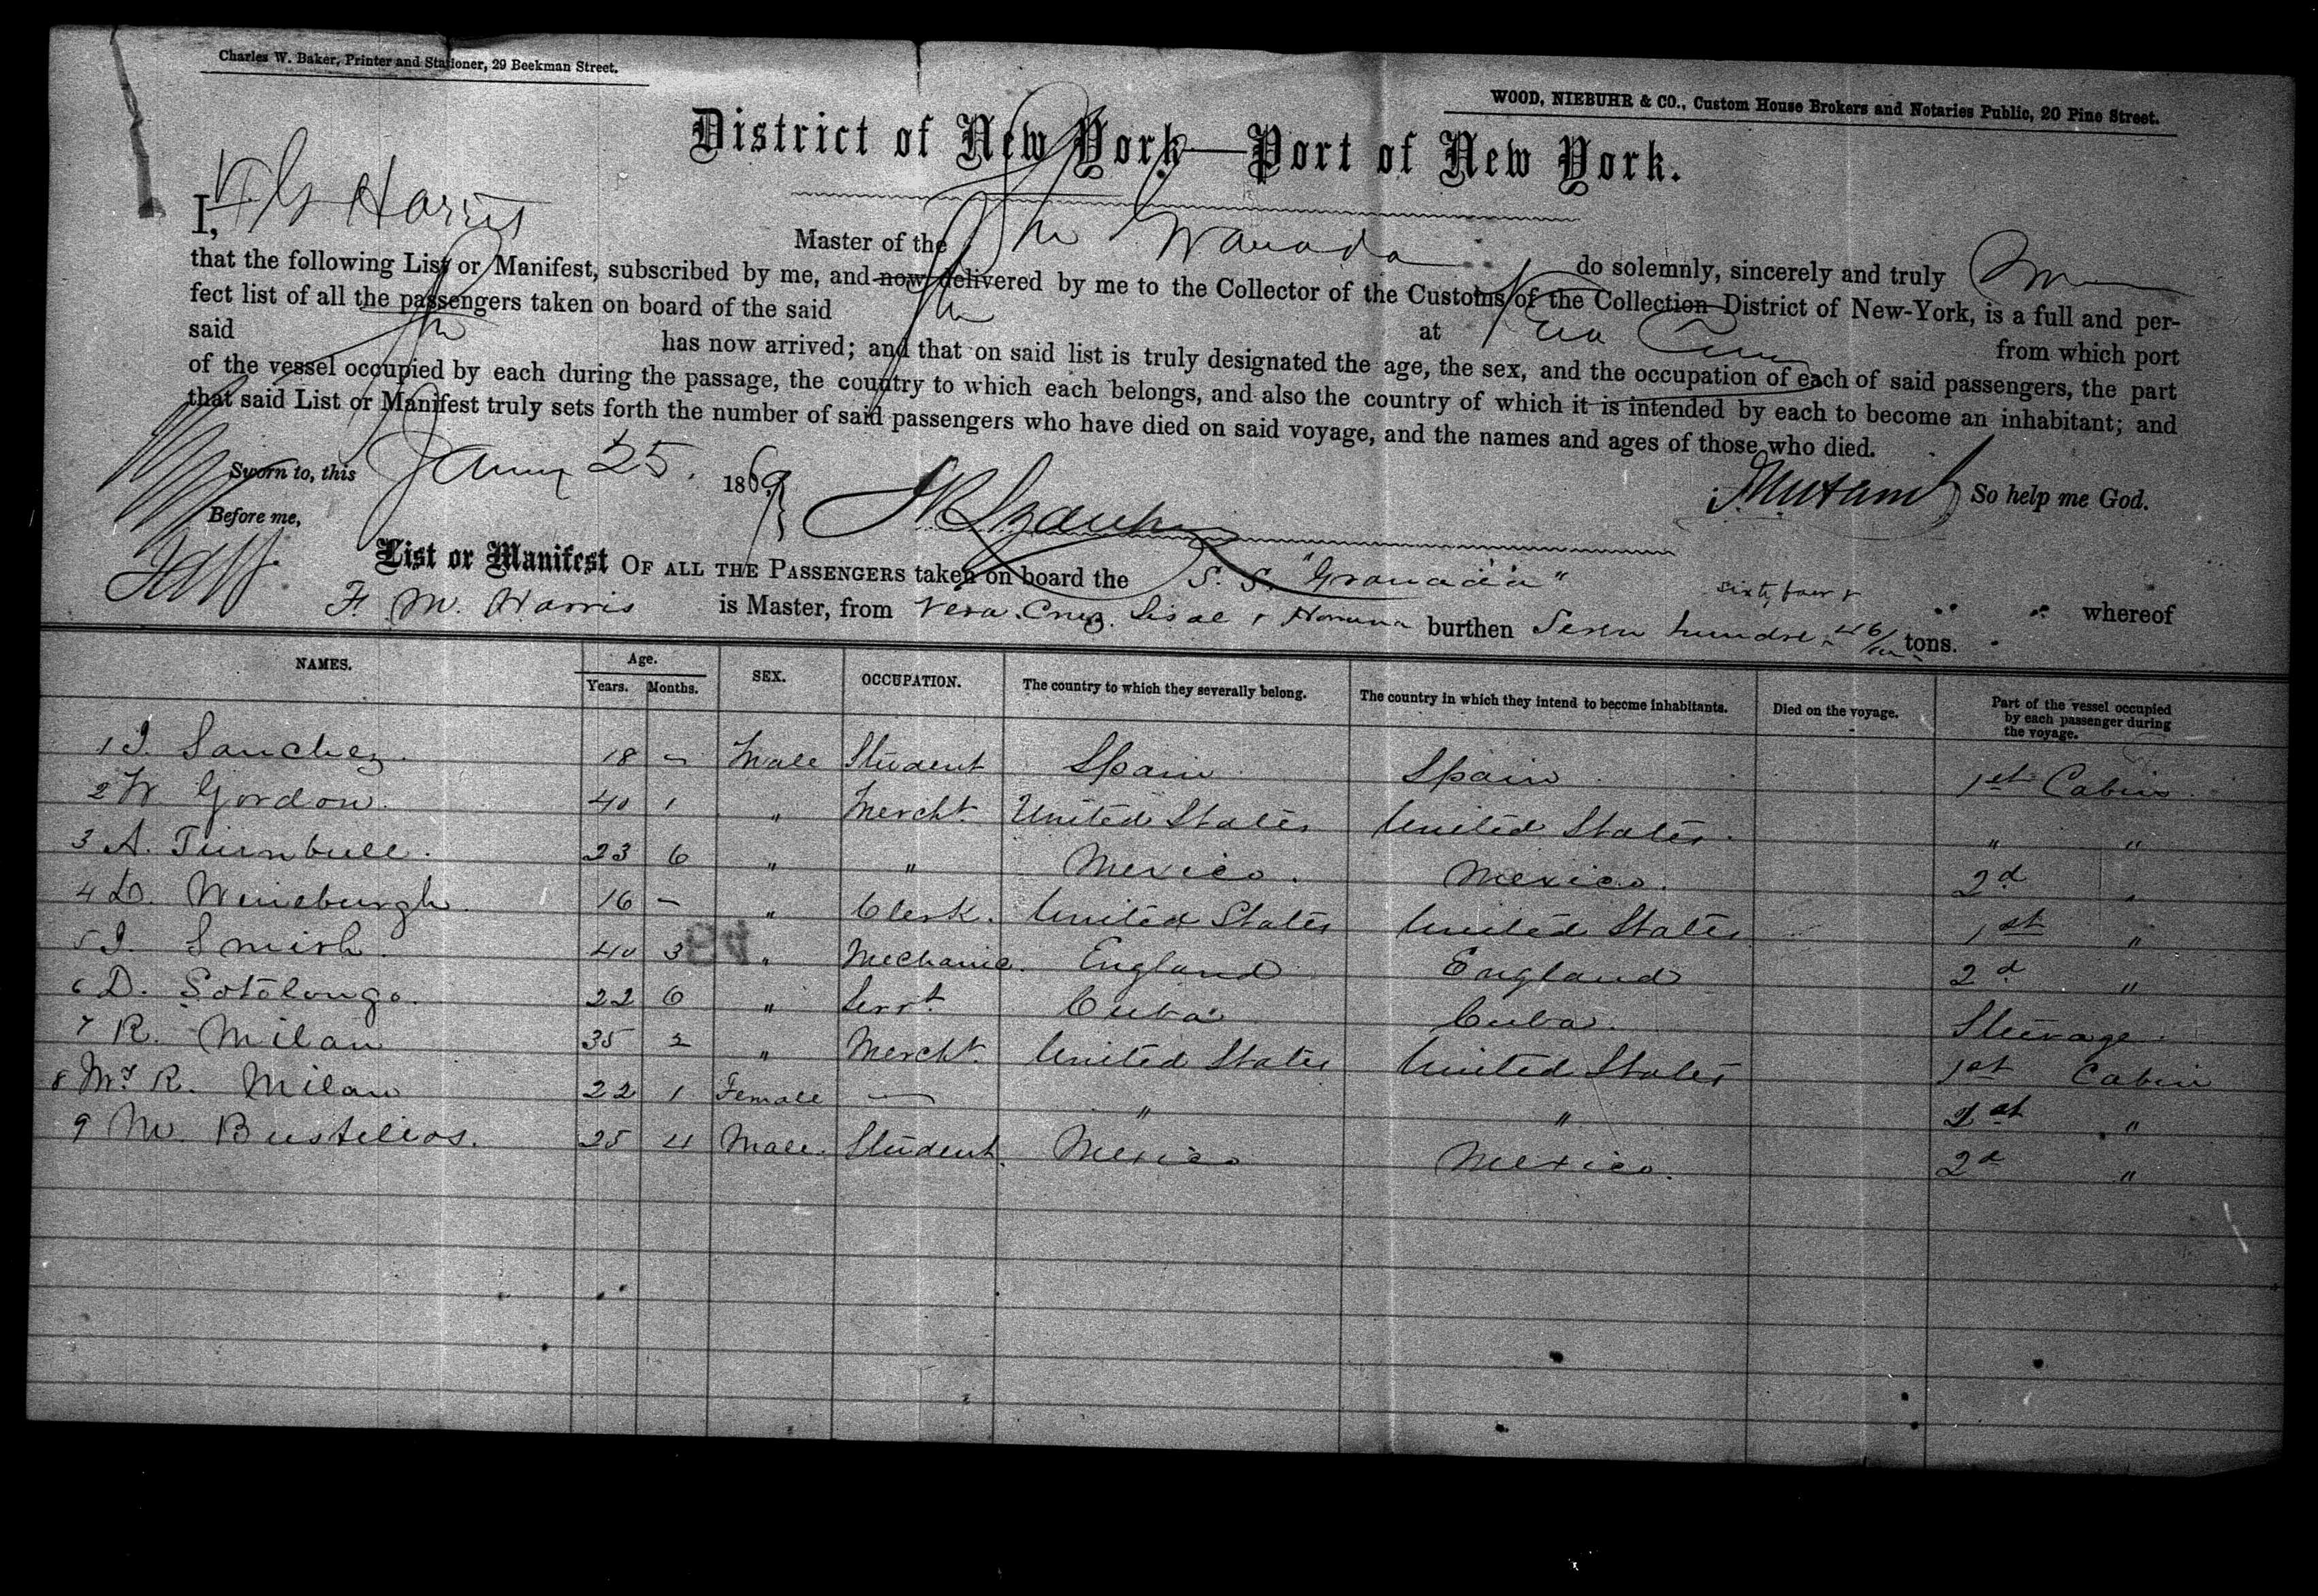 Charles W. Baker, Printer and Stationer, 29 Beekman Street.
WOOD, NIEBUHR & CO., Custom House Brokers and Notaries Public, 20 Pine Street.
District of New York—Port of New York.
I, Harris Master of the Granada do solemnly, sincerely and truly
that the following List or Manifest, subscribed by me, and now delivered by me to the Collector of the Customs of the Collection District of New-York, is a full and per-
fect list of all the passengers taken on board of the said at Vera Cruz from which port
said has now arrived; and that on said list is truly designated the age, the sex, and the occupation of each of said passengers, the part
of the vessel occupied by each during the passage, the country to which each belongs, and also the country of which it is intended by each to become an inhabitant; and
that said List or Manifest truly sets forth the number of said passengers who have died on said voyage, and the names and ages of those who died.
Sworn to, this 25. 1869 So help me God.
Before me,
List or Manifest OF ALL THE PASSENGERS taken on board the S. S. "Granada" whereof
F. M. Harris is Master, from Vera Cruz. Sisal & Havana burthen Seven hundred sixty four & 46/100 tons.
NAMES. Age. Years. Months. SEX. OCCUPATION. The country to which they severally belong. The country in which they intend to become inhabitants. Died on the voyage. Part of the vessel occupied by each passenger during the voyage.
1 J. Sanchez. 18 – Male Student Spain Spain 1st Cabin
2 W. Gordon. 40 1 " Mercht. United States United States. " "
3 A. Turnbull. 23 6 " " Mexico. Mexico. 2d "
4 D. Wineburgh. 16 – " Clerk. United States United States 1st "
5 J. Smith. 40 3 " Mechanic. England England 2d "
49
6 D. Sotolongo. 22 6 " Servt. Cuba Cuba. Steerage.
7 R. Milan 35 2 " Mercht. United States United States 1st Cabin
8 Mrs R. Milan 22 1 Female — " " 1st "
9 M. Bustillos. 25 4 Male. Student. Mexico Mexico. 2d "